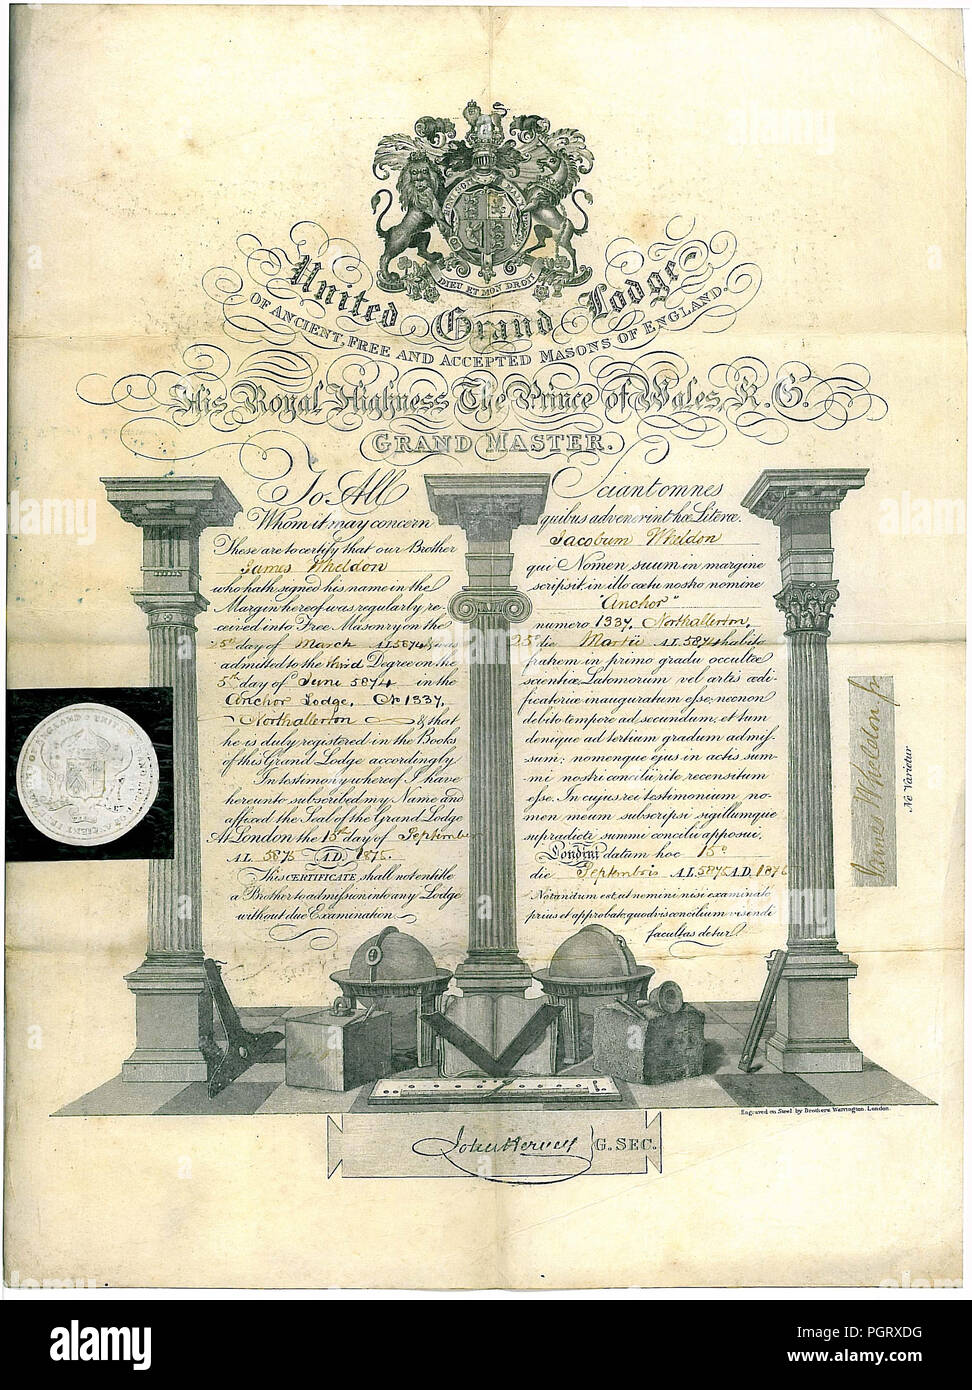 DIEU ET MON DROIT
United Grand Lodge
OF ANCIENT, FREE AND ACCEPTED MASONS OF ENGLAND.
His Royal Highness The Prince of Wales, K.G.
GRAND MASTER.
To All
Whom it may concern
These are to certify that our Brother
James Wheldon
who hath signed his name in the
Margin hereof was regularly re-
ceived into Free Masonry on the
25th day of March A.L 5874 & was
admitted to the third Degree on the
5th day of June 5874 in the
Anchor Lodge, No 1337,
Northallerton & that
he is duly registered in the Books
of this Grand Lodge accordingly.
In testimony whereof I have
hereunto subscribed my Name and
affixed the Seal of the Grand Lodge
At London the 15th day of September
A.L. 5875 A.D. 1875.
This CERTIFICATE, shall not entitle
a Brother to admission into any Lodge
without due Examination.
Sciant omnes
quibus advenerint hæ Literæ.
Jacobum Wheldon
qui Nomen suum in margine
scripsit, in illo cœtu nostro nomine
"Anchor"
numero 1337, Northallerton,
25o die Martii A.L 5874 habito
fratrem in primo gradu occultæ
scientiæ, Latomorum vel artis ædi-
ficatoriæ inauguratum esse; necnon
debito tempore ad secundum, et tum
denique ad tertium gradum admis-
sum: nomenque ejus in actis sum-
mi nostri concilii rite recensitum
esse. In cujus rei testimonium no-
men meum subscripsi sigillumque
supradicti summi concilii apposui.
Londini datum hoc 15o
die Septembris A.L 5875 A.D. 1875
Notandum est, ut nomini nisi examinato
prius et approbato, quodvis concilium visendi
facultas detur.
James Wheldon
Ne Varietur
Engraved on Steel by Brothers Warrington. London.
John Hervey G. SEC.
alamy
PGRXDG
www.alamy.com